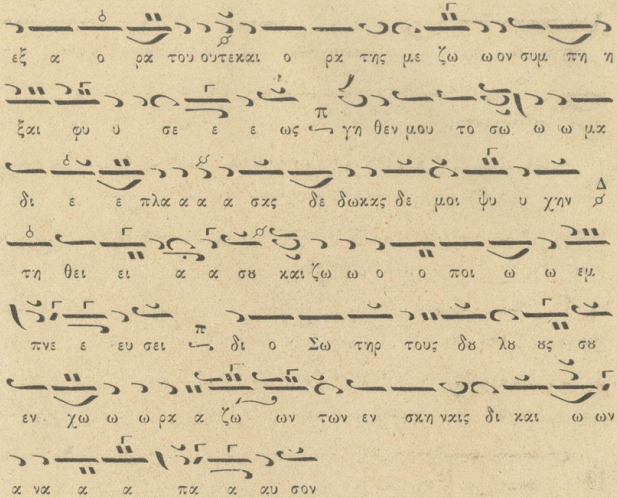 εξ α ο ρα του ουτεκαι ο ρα της με ζω ω ον συμ πη η
ξαι φυ υ σε ε ε ως π γη θεν μου το σω ω ω μα
δι ε ε πλα α α α σας δε δωκας δε μοι ψυ υ χην Δ
τη θει ει α α σȣ και ζω ω ο ο ποι ω ω εμ
πνε ε ευ σει π δι ο Σω τηρ τους δȣ λȣ ȣς σȣ
εν χω ω ω ρα α ζω ων των εν σκη ναις δι και ω ων
α να α α πα α αυ σον